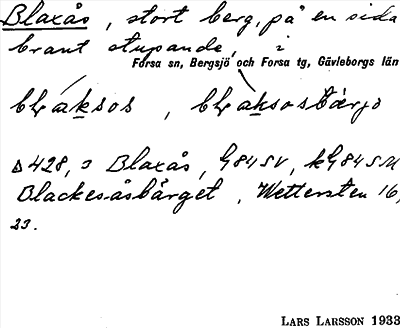 Blaxås, stort berg, på en sida
brant stupande, i
Forsa sn, Bergsjö och Forsa tg, Gävleborgs län
aksos, aksosbärjo
428, Blaxås, G84SV, kG84SM
Blackesåsbärget, Wettersten 16,
23.
LARS LARSSON 1933